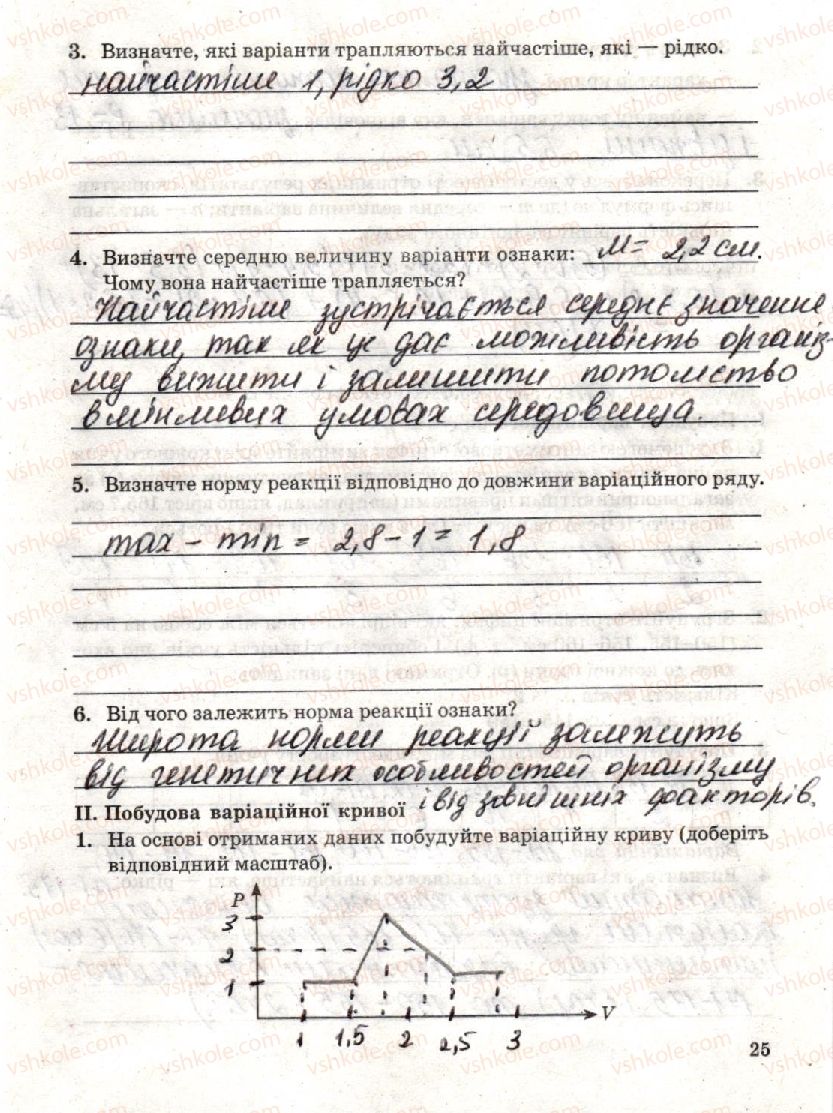 3. Визначте, які варіанти трапляються найчастіше, які — рідко.
найчастіше 1, рідко 3,2
4. Визначте середню величину варіанти ознаки: M = 2,2 см.
Чому вона найчастіше трапляється?
Найчастіше зустрічається середнє значення
ознаки, так як це дає можливість організ-
му вижити і залишити потомство
в мінливих умовах середовища.
5. Визначте норму реакції відповідно до довжини варіаційного ряду.
max – min = 2,8 – 1 = 1,8
6. Від чого залежить норма реакції ознаки?
Широта норми реакції залежить
від генетичних особливостей організму
і від зовнішніх факторів.
II. Побудова варіаційної кривої
1. На основі отриманих даних побудуйте варіаційну криву (доберіть
відповідний масштаб).
P
3
2
1
1 1,5 2 2,5 3 V
25